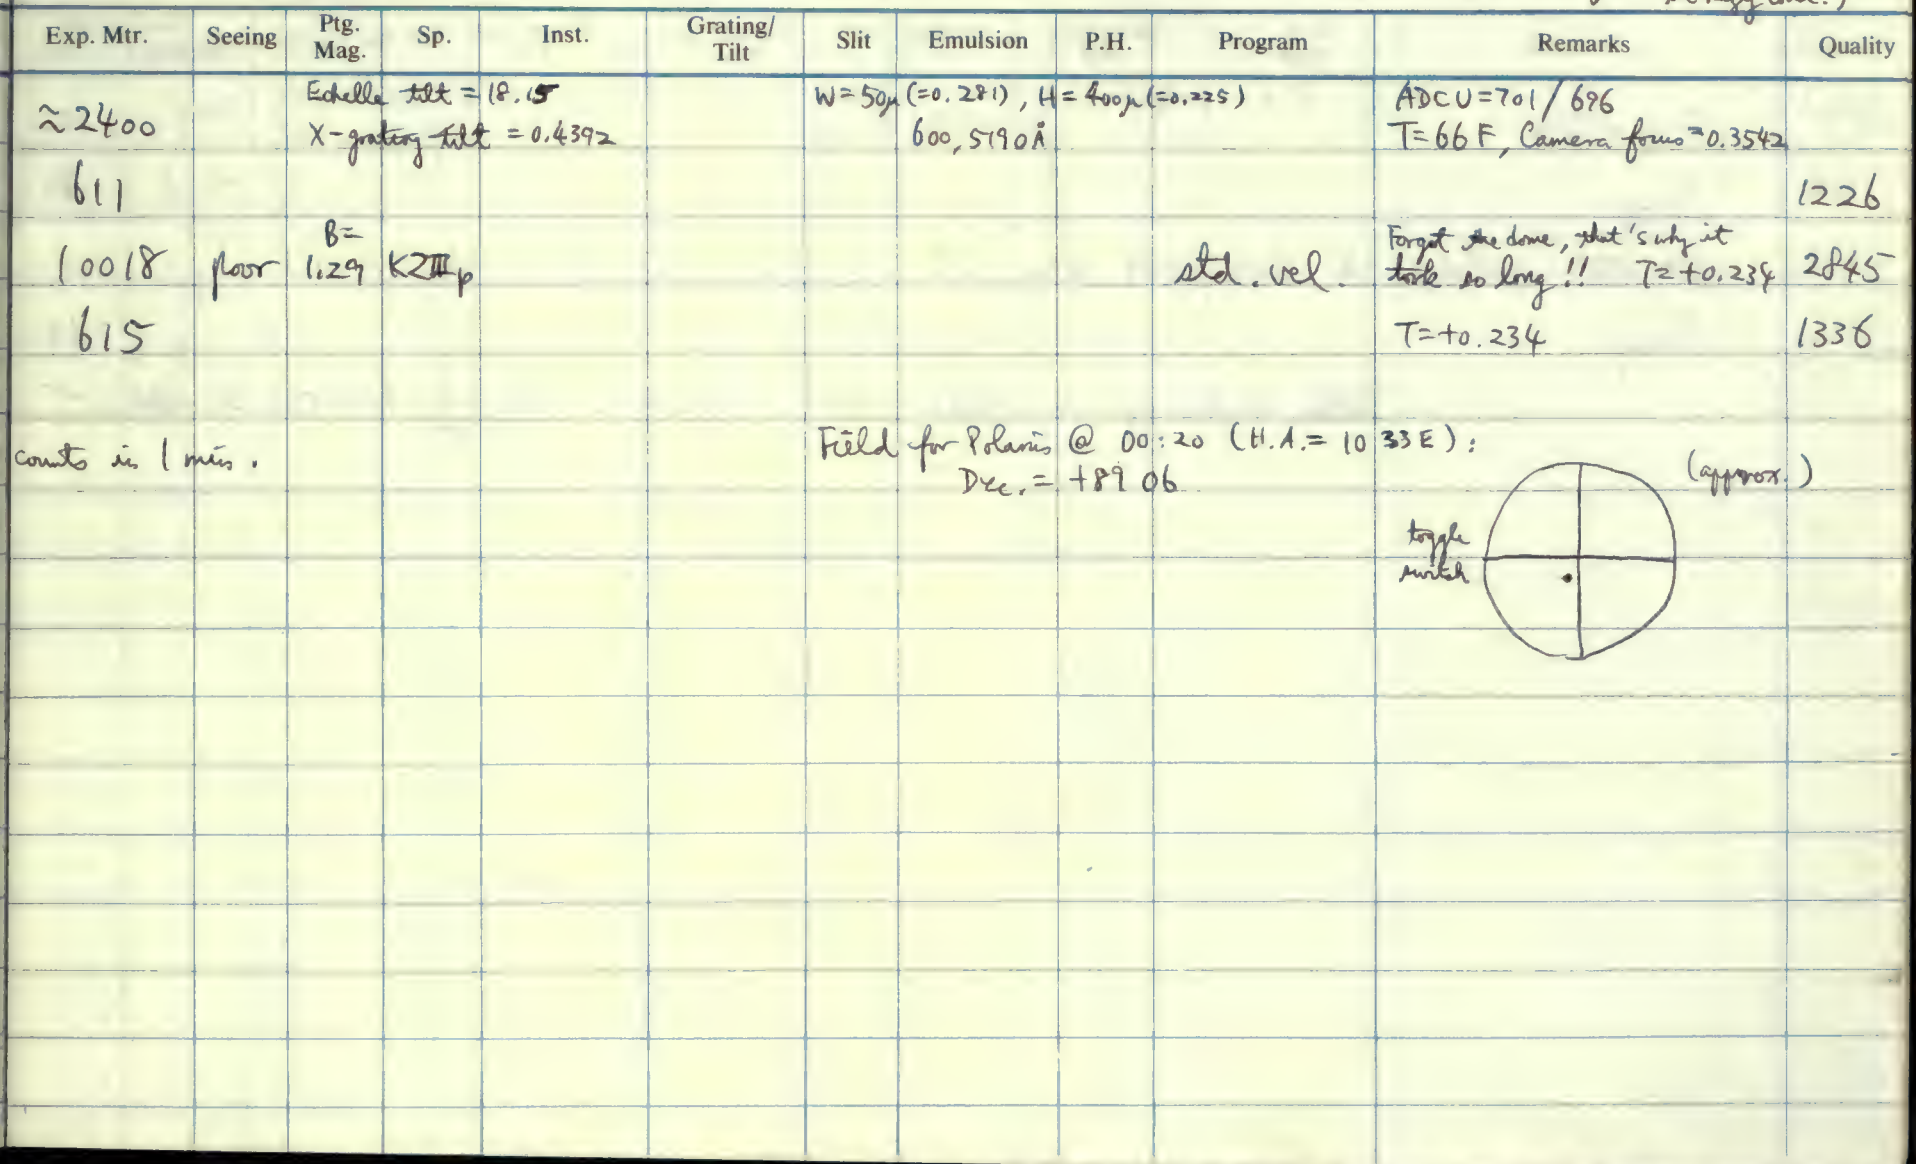 Exp. Mtr. Seeing Ptg. Mag. Sp. Inst. Grating/ Tilt Slit Emulsion P.H. Program Remarks Quality
≈2400 Echelle tilt = 18.15 W=50μ (=0.281), H=400μ (=0.225) ADCU=701/696
X-grating tilt = 0.4392 600, 5190Å T=66F, Camera focus=0.3542
611 1226
10018 poor B=1.29 K2IIIp std. vel. Forgot the dome, that's why it
took so long!! T=+0.234 2845
615 T=+0.234 1336
counts in 1 min. Field for Polaris @ 00:20 (H.A.= 10 33 E):
Dec. = +89 06
(approx.)
toggle
switch